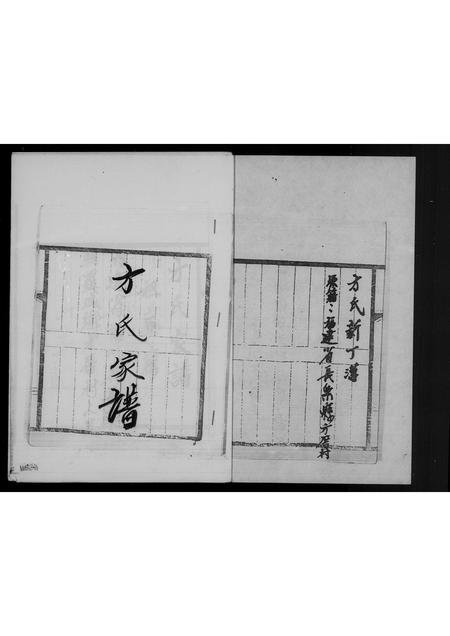 方氏新丁簿
原籍：福建省長乐縣方厝村
方氏家譜